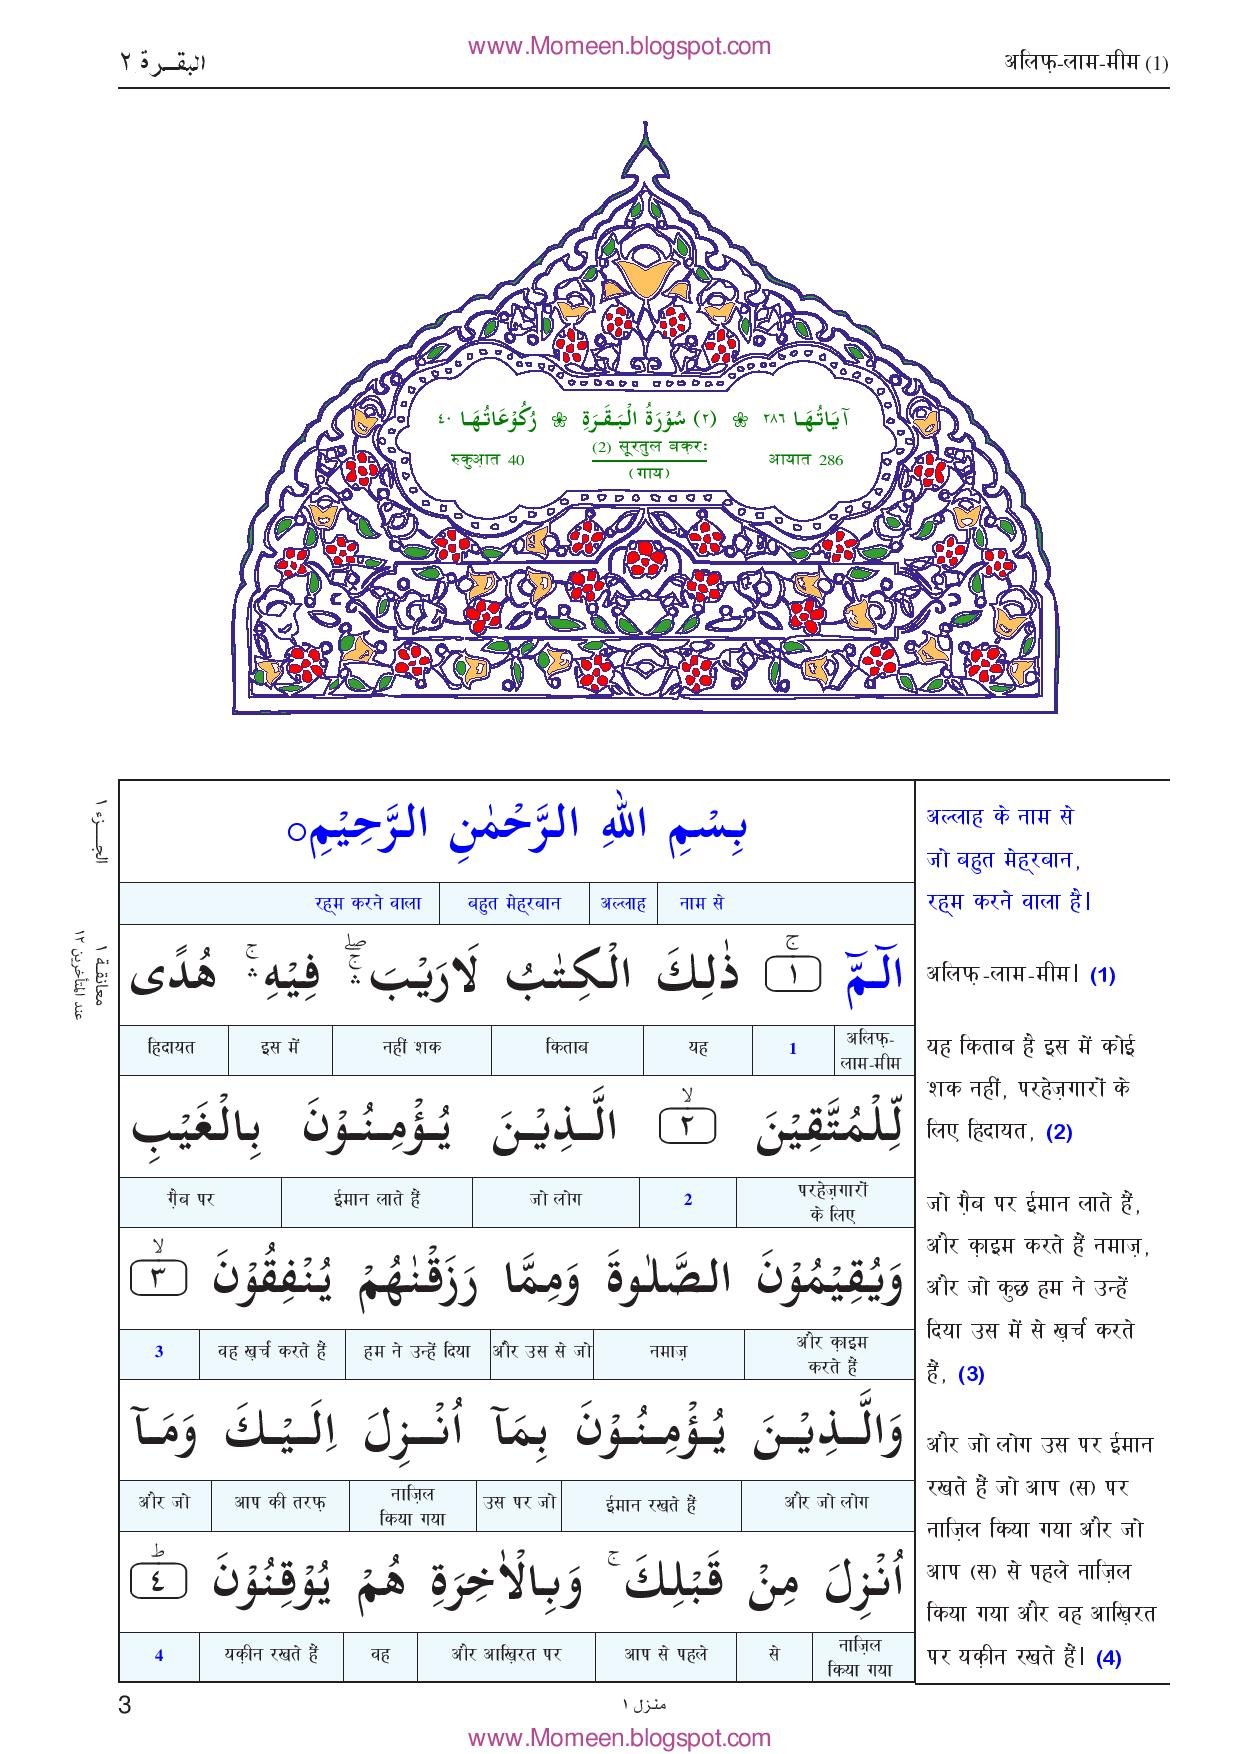 www.Momeen.blogspot.com
البقـرة ٢
अलिफ़-लाम-मीम (1)
اٰيَاتُهَا ٢٨٦ ❀ (٢) سُوْرَةُ الْبَقَرَةِ ❀ رُكُوْعَاتُهَا ٤٠
रुकुआ़त 40 (2) सूरतुल बक़रः आयात 286
(गाय)
الجـزء ١
معانقـة ١
عند المتأخرين ١٢
بِسْمِ اللهِ الرَّحْمٰنِ الرَّحِيْمِ○
नाम से अल्लाह बहुत मेह्रबान रह्म करने वाला
الٓـمّٓ ۚ ١ ذٰلِكَ الْكِتٰبُ لَارَيْبَ ۛۖۚ فِيْهِ ۛۚ هُدًى
अलिफ़-लाम-मीम 1 यह किताब नहीं शक इस में हिदायत
لِّلْمُتَّقِيْنَ ۙ ٢ الَّذِيْنَ يُؤْمِنُوْنَ بِالْغَيْبِ
परहेज़गारों के लिए 2 जो लोग ईमान लाते हैं ग़ैब पर
وَيُقِيْمُوْنَ الصَّلٰوةَ وَمِمَّا رَزَقْنٰهُمْ يُنْفِقُوْنَ ۙ ٣
और क़ाइम करते हैं नमाज़ और उस से जो हम ने उन्हें दिया वह ख़र्च करते हैं 3
وَالَّذِيْنَ يُؤْمِنُوْنَ بِمَآ اُنْزِلَ اِلَيْكَ وَمَآ
और जो लोग ईमान रखते हैं उस पर जो नाज़िल किया गया आप की तरफ़ और जो
اُنْزِلَ مِنْ قَبْلِكَ ۚ وَبِالْاٰخِرَةِ هُمْ يُوْقِنُوْنَ ؕ ٤
नाज़िल किया गया से आप से पहले और आख़िरत पर वह यक़ीन रखते हैं 4
अल्लाह के नाम से
जो बहुत मेह्रबान,
रह्म करने वाला है।
अलिफ़-लाम-मीम। (1)
यह किताब है इस में कोई
शक नहीं, परहेज़गारों के
लिए हिदायत, (2)
जो ग़ैब पर ईमान लाते हैं,
और क़ाइम करते हैं नमाज़,
और जो कुछ हम ने उन्हें
दिया उस में से ख़र्च करते
हैं, (3)
और जो लोग उस पर ईमान
रखते हैं जो आप (स) पर
नाज़िल किया गया और जो
आप (स) से पहले नाज़िल
किया गया और वह आख़िरत
पर यक़ीन रखते हैं। (4)
3
منزل ١
www.Momeen.blogspot.com